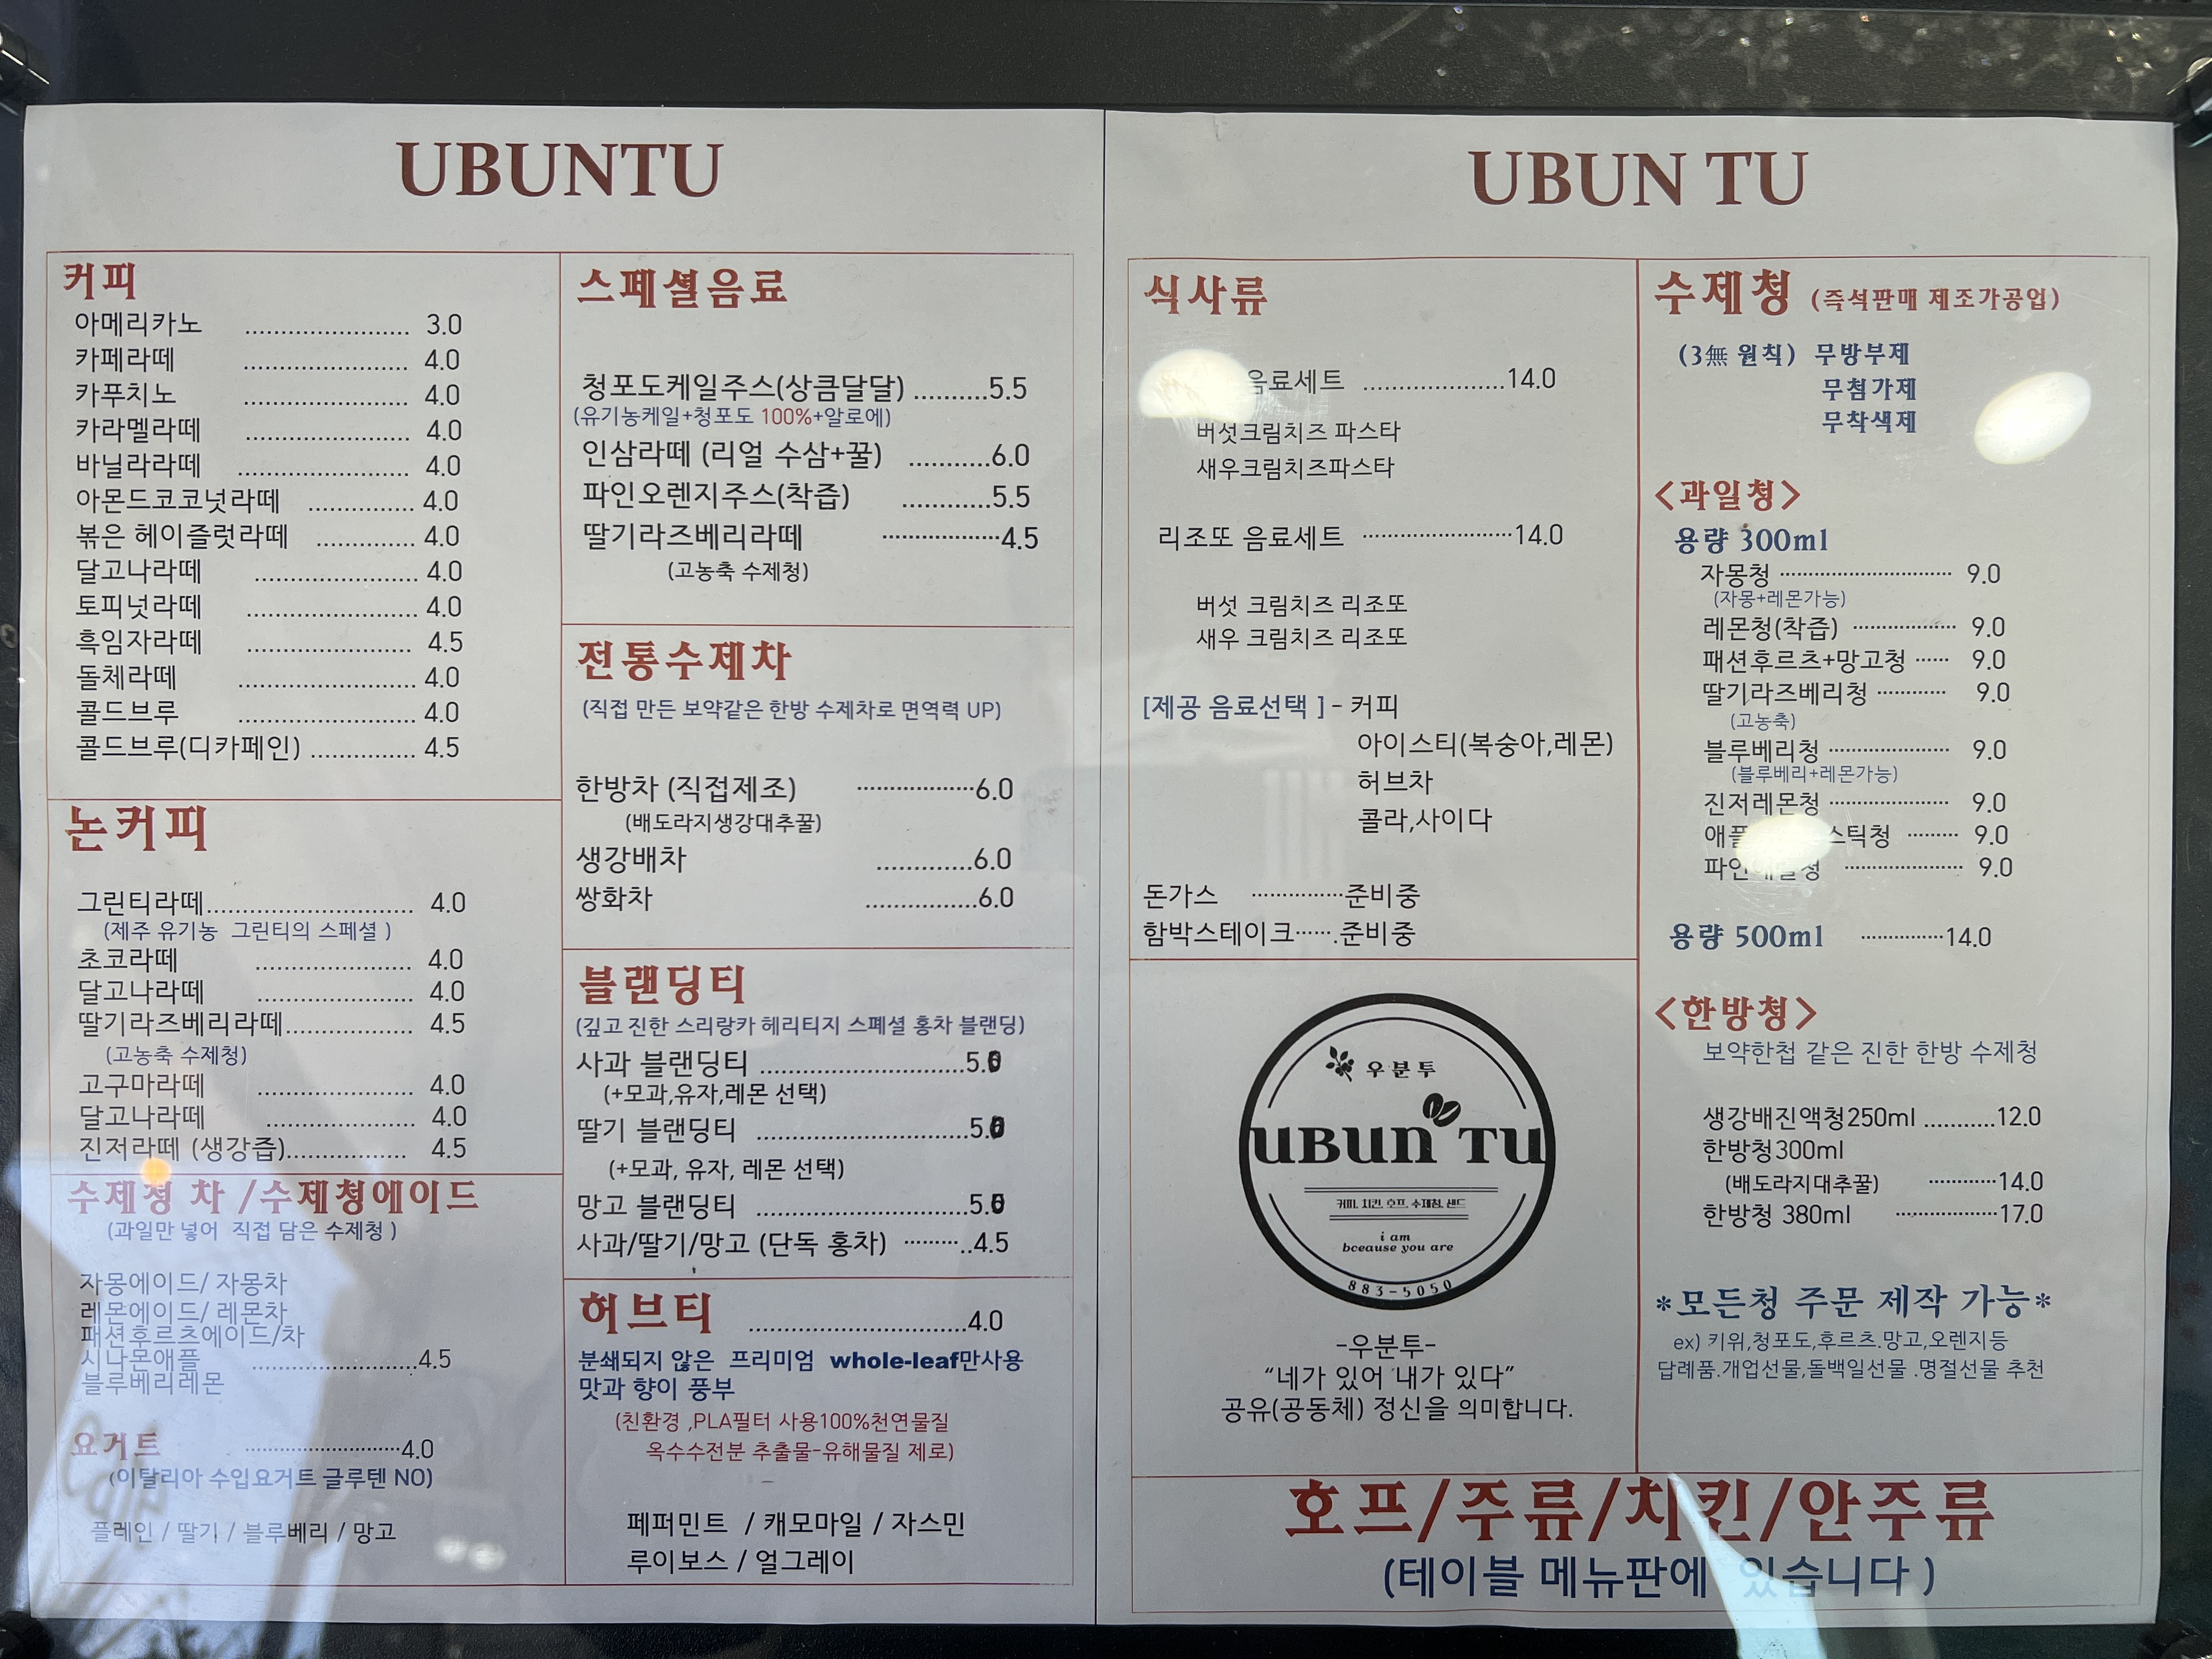 UBUNTU
커피
아메리카노 ...................... 3.0
카페라떼 ...................... 4.0
카푸치노 ...................... 4.0
카라멜라떼 ...................... 4.0
바닐라라떼 ....................... 4.0
아몬드코코넛라떼 .............. 4.0
볶은 헤이즐럿라떼 ............. 4.0
달고나라떼 ...................... 4.0
토피넛라떼 ....................... 4.0
흑임자라떼 ...................... 4.5
돌체라떼 ........................ 4.0
콜드브루 ........................ 4.0
콜드브루(디카페인) .............. 4.5
논커피
그린티라떼............................ 4.0
(제주 유기농 그린티의 스페셜 )
초코라떼 ..................... 4.0
달고나라떼 ..................... 4.0
딸기라즈베리라떼................. 4.5
(고농축 수제청)
고구마라떼 ..................... 4.0
달고나라떼 .................... 4.0
진저라떼 (생강즙)................ 4.5
수제청 차 /수제청에이드
(과일만 넣어 직접 담은 수제청 )
자몽에이드/ 자몽차
레몬에이드/ 레몬차
패션후르츠에이드/차
시나몬애플 ......................4.5
블루베리레몬
요거트 ............................4.0
(이탈리아 수입요거트 글루텐 NO)
플레인 / 딸기 / 블루베리 / 망고
스페셜음료
청포도케일주스(상큼달달) ..........5.5
(유기농케일+청포도 100%+알로에)
인삼라떼 (리얼 수삼+꿀) ...........6.0
파인오렌지주스(착즙) ............5.5
딸기라즈베리라떼 ....................4.5
(고농축 수제청)
전통수제차
(직접 만든 보약같은 한방 수제차로 면역력 UP)
한방차 (직접제조) .....................6.0
(배도라지생강대추꿀)
생강배차 .............6.0
쌍화차 ...............6.0
블랜딩티
(깊고 진한 스리랑카 헤리티지 스폐셜 홍차 블랜딩)
사과 블랜딩티 ...........................5.
(+모과,유자,레몬 선택)
딸기 블랜딩티 ............................5.
(+모과, 유자, 레몬 선택)
망고 블랜딩티 ............................5.
사과/딸기/망고 (단독 홍차) ...........4.5
허브티 .............................4.0
분쇄되지 않은 프리미엄 whole-leaf만사용
맛과 향이 풍부
(친환경 ,PLA필터 사용100%천연물질
옥수수전분 추출물-유해물질 제로)
페퍼민트 / 캐모마일 / 자스민
루이보스 / 얼그레이
UBUN TU
식사류
음료세트 ...................14.0
버섯크림치즈 파스타
새우크림치즈파스타
리조또 음료세트 ..........................14.0
버섯 크림치즈 리조또
새우 크림치즈 리조또
[제공 음료선택 ] - 커피
아이스티(복숭아,레몬)
허브차
콜라,사이다
돈가스 ...............준비중
함박스테이크.......준비중
우분투
UBUN TU
커피, 치킨, 호프, 수제청, 샌드
i am
bceause you are
883-5050
-우분투-
“네가 있어 내가 있다”
공유(공동체) 정신을 의미합니다.
수제청 (즉석판매 제조가공업)
(3無 원칙) 무방부제
무첨가제
무착색제
<과일청>
용량 300ml
자몽청 .............................. 9.0
(자몽+레몬가능)
레몬청(착즙) .................. 9.0
패션후르츠+망고청 ...... 9.0
딸기라즈베리청 ............ 9.0
(고농축)
블루베리청 ..................... 9.0
(블루베리+레몬가능)
진저레몬청 ..................... 9.0
애플 스틱청 ......... 9.0
파인 청 .................... 9.0
용량 500ml ..............14.0
<한방청>
보약한첩 같은 진한 한방 수제청
생강배진액청250ml ..........12.0
한방청300ml
(배도라지대추꿀) ............14.0
한방청 380ml .................17.0
*모든청 주문 제작 가능*
ex) 키위,청포도,후르츠.망고,오렌지등
답례품.개업선물,돌백일선물 .명절선물 추천
호프/주류/치킨/안주류
(테이블 메뉴판에 있습니다 )